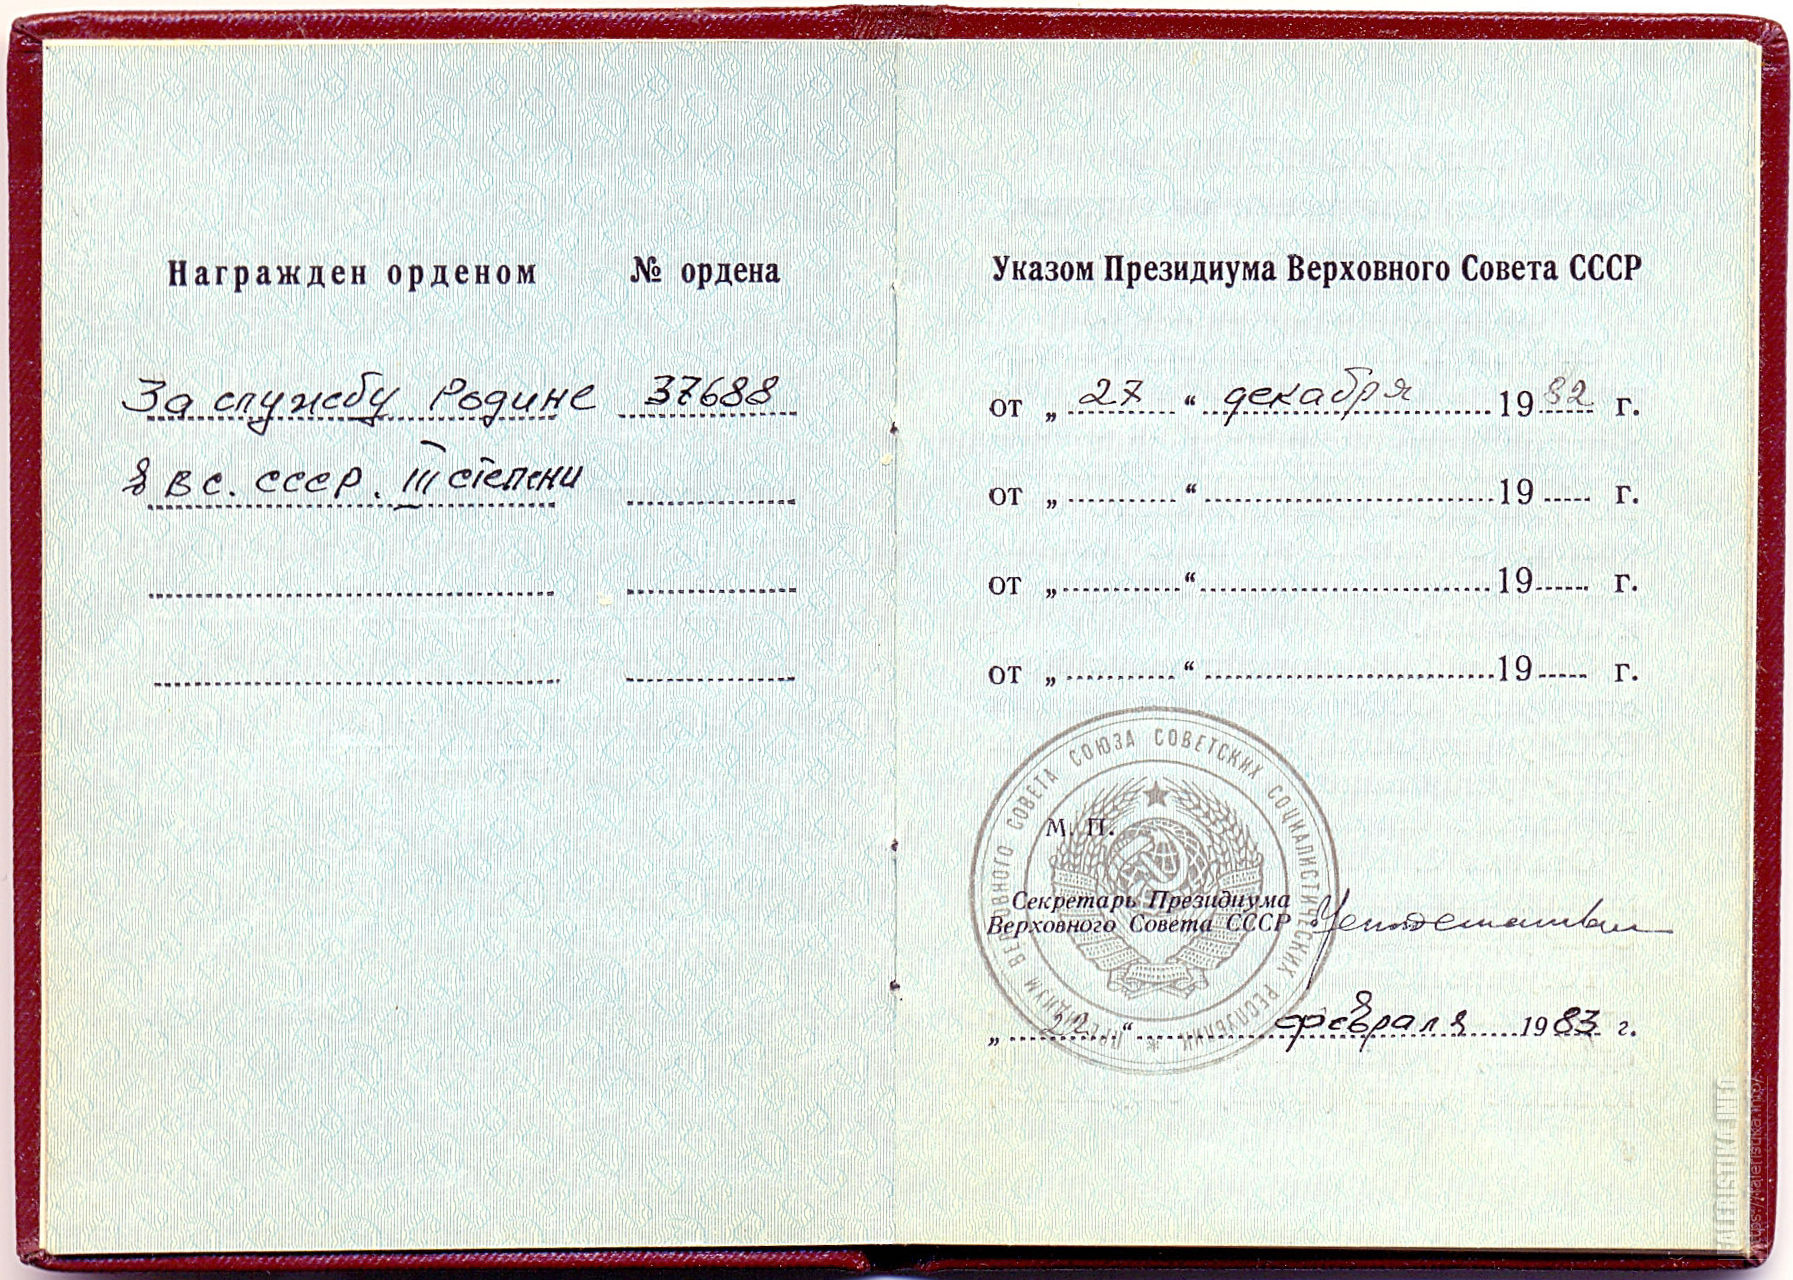 Награжден орденом № ордена
За службу Родине 37688
в ВС. СССР. III степени
Указом Президиума Верховного Совета СССР
от „ 27 “ декабря 1982 г.
от „ “ 19 г.
от „ “ 19 г.
от „ “ 19 г.
ПРЕЗИДИУМ ВЕРХОВНОГО СОВЕТА СОЮЗА СОВЕТСКИХ СОЦИАЛИСТИЧЕСКИХ РЕСПУБЛИК
М. П.
Секретарь Президиума
Верховного Совета СССР
„ 22 “ февраля 1983 г.
FALERISTIKA.INFO
https://faleristika.info/